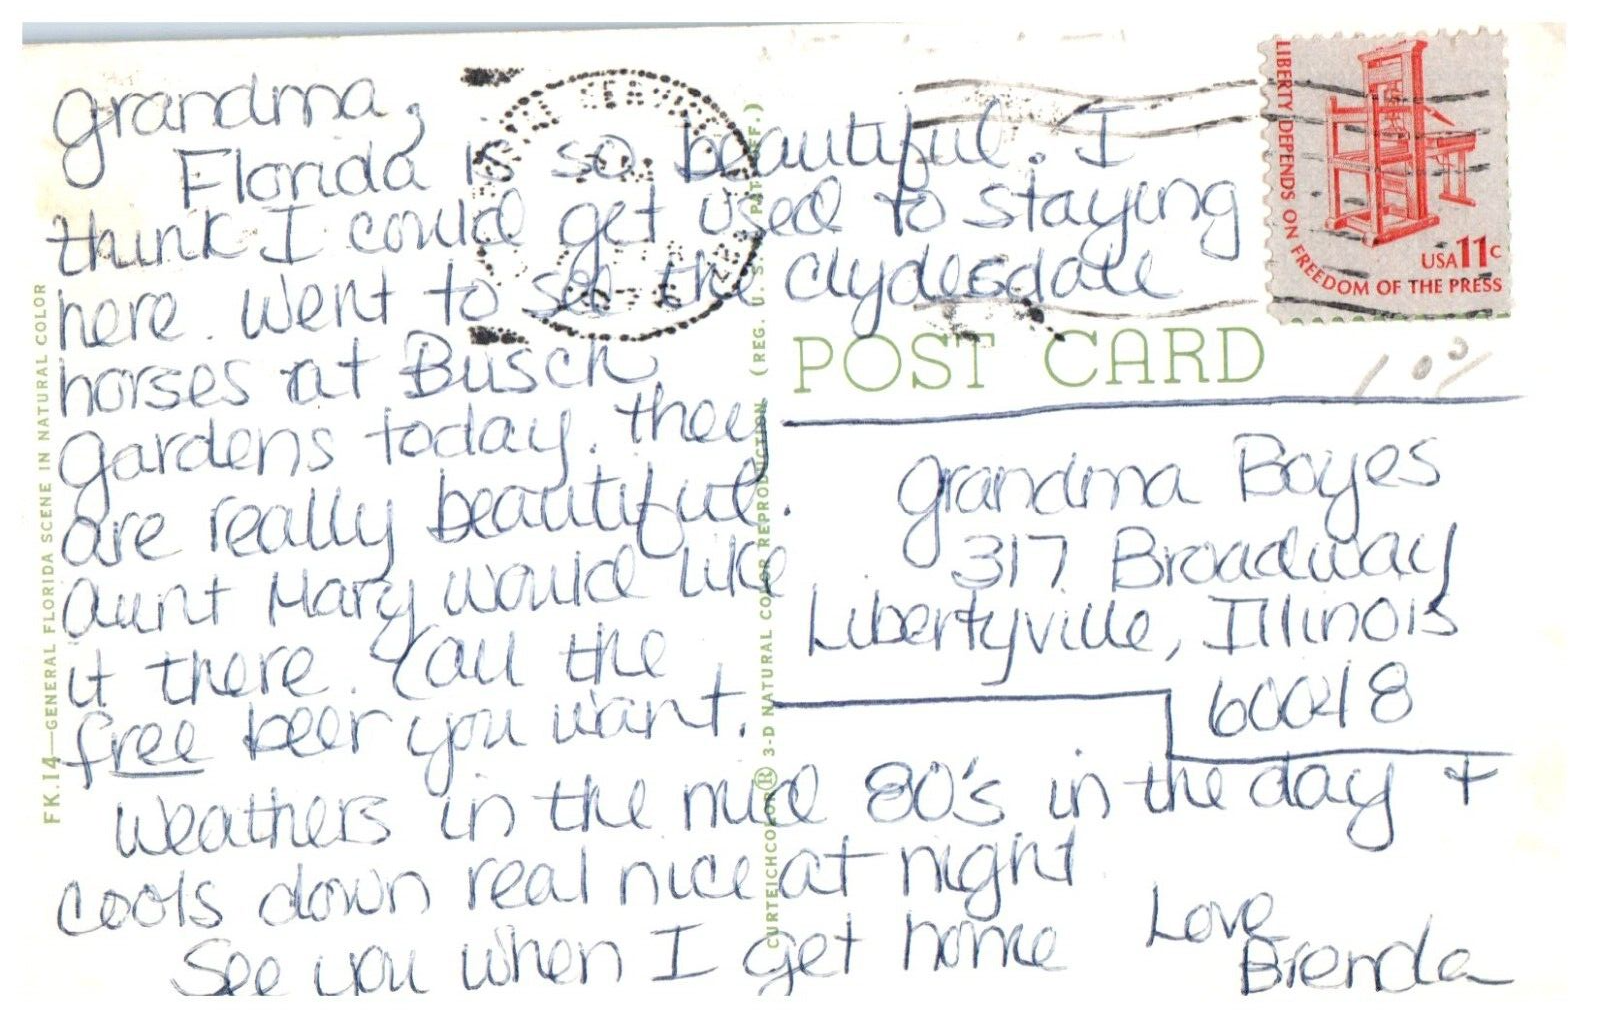 Grandma,
Florida is so beautiful. I
think I could get used to staying
here. Went to see the clydesdale
horses at Busch
Gardens today. they
are really beautiful.
Aunt Mary would like
it there. (all the
free beer you want.
Weathers in the mid 80's in the day +
cools down real nice at night
See you when I get home
Love
Brenda
POST CARD
Grandma Boyes
317 Broadway
Libertyville, Illinois
60048
LIBERTY DEPENDS ON FREEDOM OF THE PRESS
USA 11c
FK.14—GENERAL FLORIDA SCENE IN NATURAL COLOR
CURTEICHCOLOR® 3-D NATURAL COLOR REPRODUCTION (REG. U. S. PAT. OFF.)